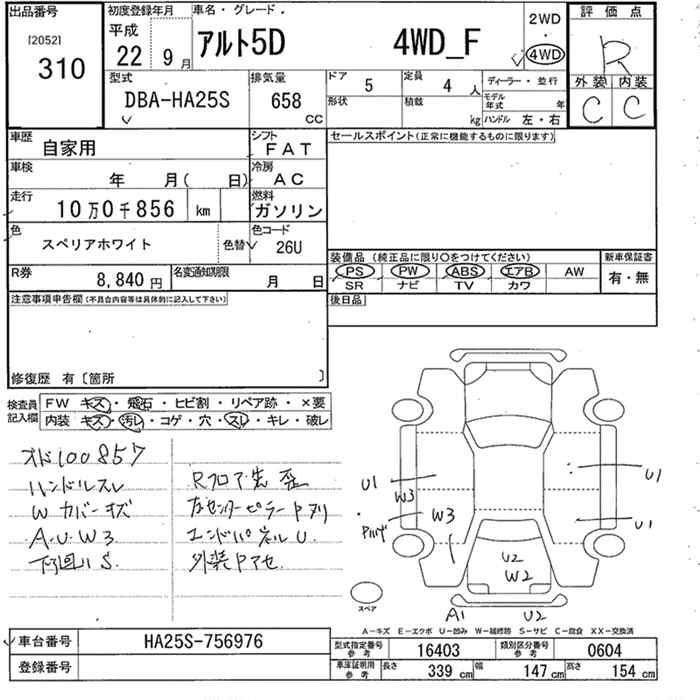 出品番号 初度登録年月 車名・グレード 2WD 評価点
[2052] 平成
310 22年 9月 アルト5D 4WD_F 4WD R
型式 排気量 ドア 5 定員 4人 ディーラー・並行 外装 内装
DBA-HA25S 658 CC 形状 積載 kg モデル年式 年 C C
ハンドル 左・右
車歴 自家用 シフト FAT セールスポイント(正常に機能するものに限ります)
車検 年 月( 日) 冷房 AC
走行 10万0千856 km 燃料 ガソリン
色 スペリアホワイト 色替 色コード 26U
装備品 (純正品に限り○をつけてください) 新車保証書
R券 8,840円 名変通知期限 月 日 PS PW ABS エアB AW 有・無
SR ナビ TV カワ
注意事項申告欄(不具合内容等は具体的に記入して下さい) 後日品
修復歴 有〔箇所 〕
検査員記入欄 FW キズ・飛石・ヒビ割・リペア跡・×要
内装 キズ・汚レ・コゲ・穴・スレ・キレ・破レ
オド100857
ハンドルスレ Rフロア先 歪
W カバーキズ 左センターピラー
A.U.W3 エンドパネルU.
下回りS. 外装
U1 W3 W3 U1 U1
U2
W2
スペア A1 U2
A-キズ E-エクボ U-凹み W-補修跡 S-サビ C-腐食 XX-交換済
車台番号 HA25S-756976 型式指定番号 参考 16403 類別区分番号 参考 0604
登録番号 車庫証明用 参考 長さ 339 cm 幅 147 cm 高さ 154 cm